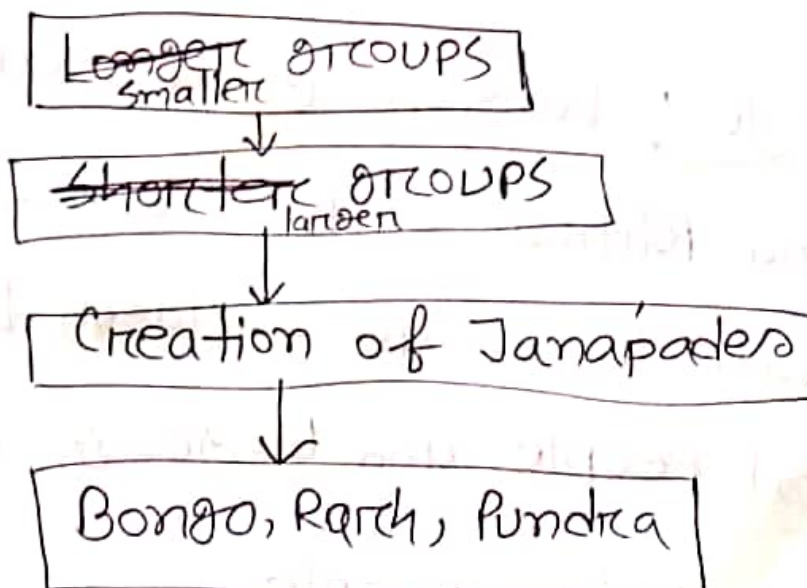 Longer groups
smaller
Shorter groups
larger
Creation of Janapades
Bongo, Rarh, Pundra